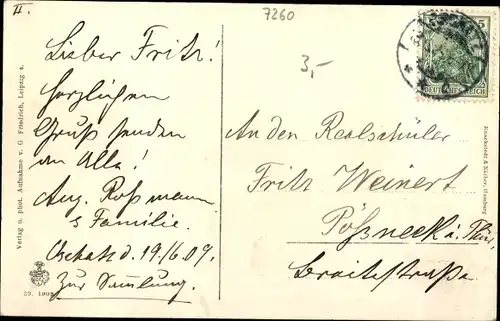 II.
7260
3,-
Lieber Fritz!
Herzlichen
Gruß senden
an Alle!
Aug. Roßmann
& Familie.
Oschatz d. 19./6.09.
Zur Samlung.
An den Realschüler
Fritz Weinert
Pößneck i. Thür,
Breitestraße.
5
DEUTSCHES REICH
Verlag u. phot. Aufnahme v. G. Friedrich, Leipzig
Knackstedt & Näther, Hamburg